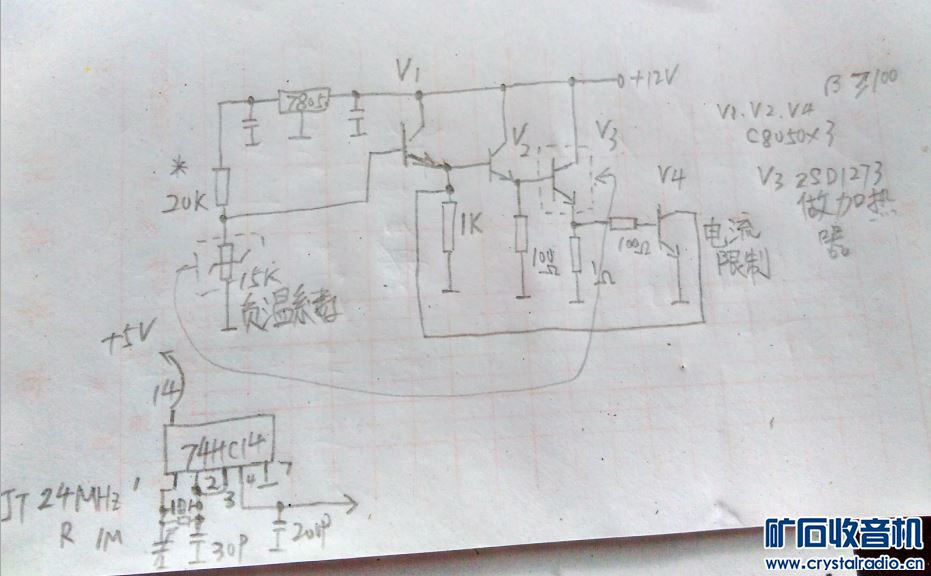 V1
7805
+12V
β≥100
V1.V2.V4
C8050×3
V2
V3
V4
V3 2SD1273
做加热
器
*
20K
1K
100Ω
1Ω
100Ω
电流
限制
15K
负温系数
+5V
14
74HC14
1
2
3
4
7
JT 24MHz
R 1M
30P
200P
矿石收音机
www.crystalradio.cn